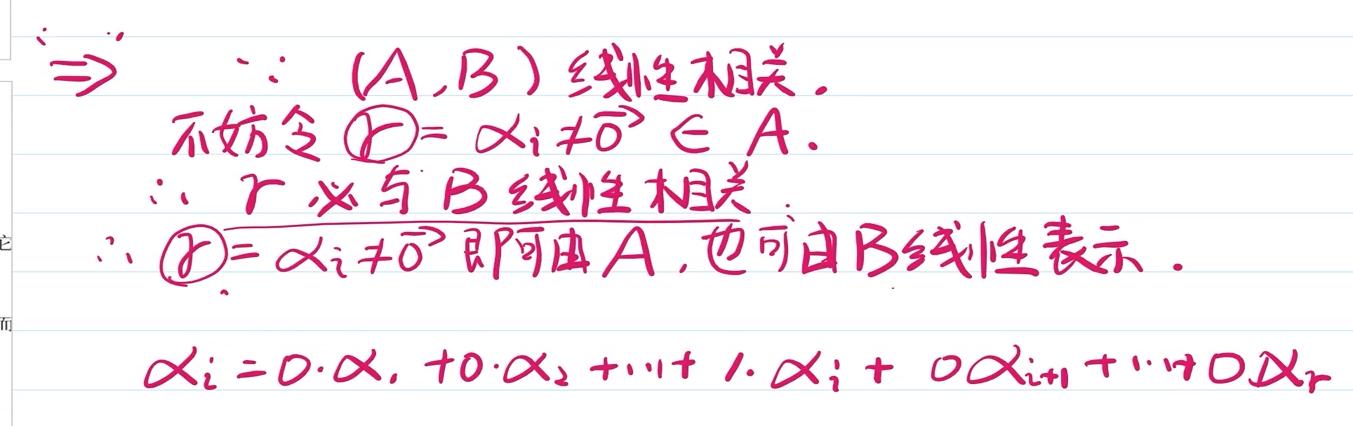 ⇒ ∵ (A,B) 线性相关.
不妨令 γ = αᵢ ≠ 0⃗ ∈ A.
∴ γ 必与 B 线性相关.
∴ γ = αᵢ ≠ 0⃗ 即可由 A, 也可由 B 线性表示.
αᵢ = 0·α₁ + 0·α₂ + ... + 1·αᵢ + 0αᵢ₊₁ + ... + 0αᵣ